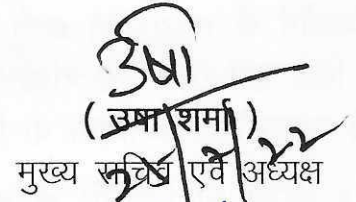 उषा
( उषा शर्मा )
मुख्य सचिव एवं अध्यक्ष